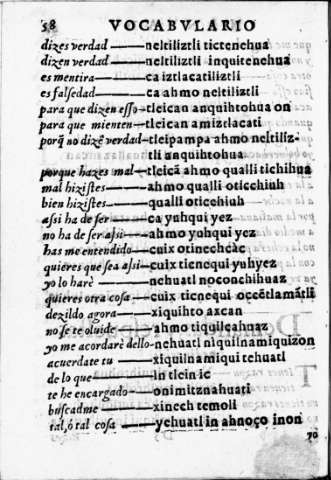 58 VOCABVLARIO
dizes verdad ——neltiliztli tictenehua
dizen verdad ——neltiliztli inquitenehua
es mentira ——ca iztlacatiliztli
es falsedad ——ca ahmo neltiliztli
para que dizen esso—tleican anquihtohua on
para que mienten—tleican amiztlacati
porq̃ no dizẽ verdad—tleipampa ahmo neltiliz-
tli anquihtohua
porque hazes mal—tleicã ahmo qualli tichihua
mal hizistes ——ahmo qualli oticchiuh
bien hizistes ——qualli oticchiuh
assi ha de ser ——ca yuhqui yez
no ha de ser assi—ahmo yuhqui yez
has me entendido—cuix otinechcàc
quieres que sea assi—cuix ticnequi yuhyez
yo lo harè ——nehuatl noconchihuaz
quieres otra cosa—cuix ticnequi occẽtlamãtli
dezildo agora ——xiquihto axcan
no se te oluide ——ahmo tiquilcahuaz
yo me acordarè dello-nehuatl niquilnamiquizon
acuerdate tu ——xiquilnamiqui tehuatl
de lo que ——in tlein ic
te he encargado—onimitznahuati
buscadme ——xinech temoli
tal, ò tal cosa ——yehuatl in ahnoço inon
yo